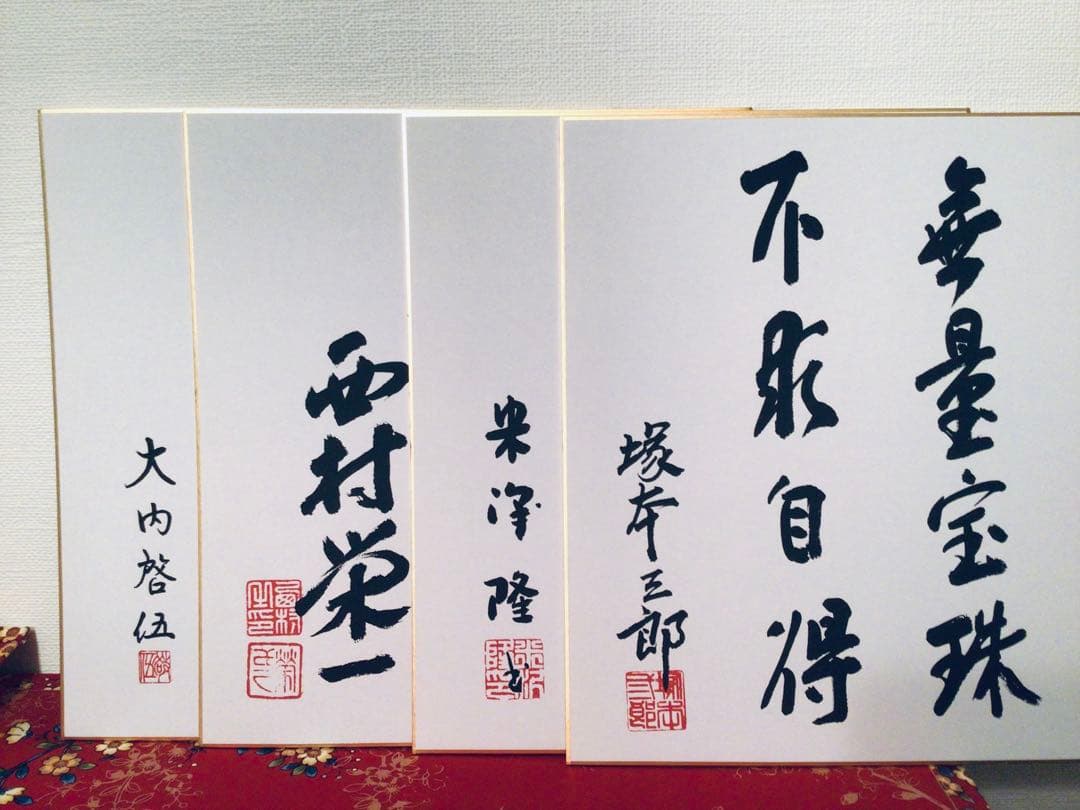 無量宝珠
不求自得
塚本三郎
米澤隆
西村栄一
大内啓伍